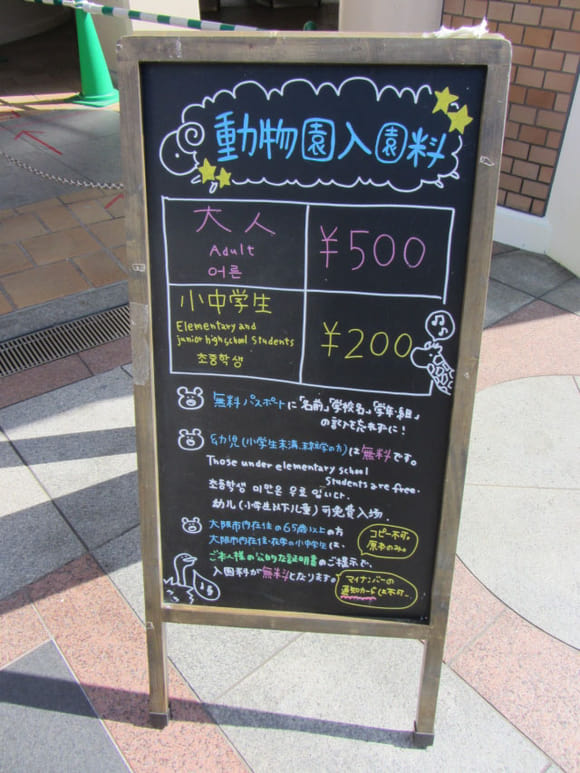 動物園入園料
大人
Adult
어른
¥500
小中学生
Elementary and
junior high school students
초중학생
¥200
無料パスポートに「名前」「学校名」「学年・組」
の記入を忘れずに!
幼児(小学生未満、未就学の方)は無料です。
Those under elementary school
Students are free.
초등학생 미만은 무료 입니다.
幼儿(小学生以下儿童)可免費入場.
大阪市内在住の65歳以上の方
大阪市内在住・在学の小中学生は、
ご本人様の公的な証明書のご提示で、
入園料が無料となります。
コピー不可。
原本のみ。
マイナンバーの
通知カードは不可。